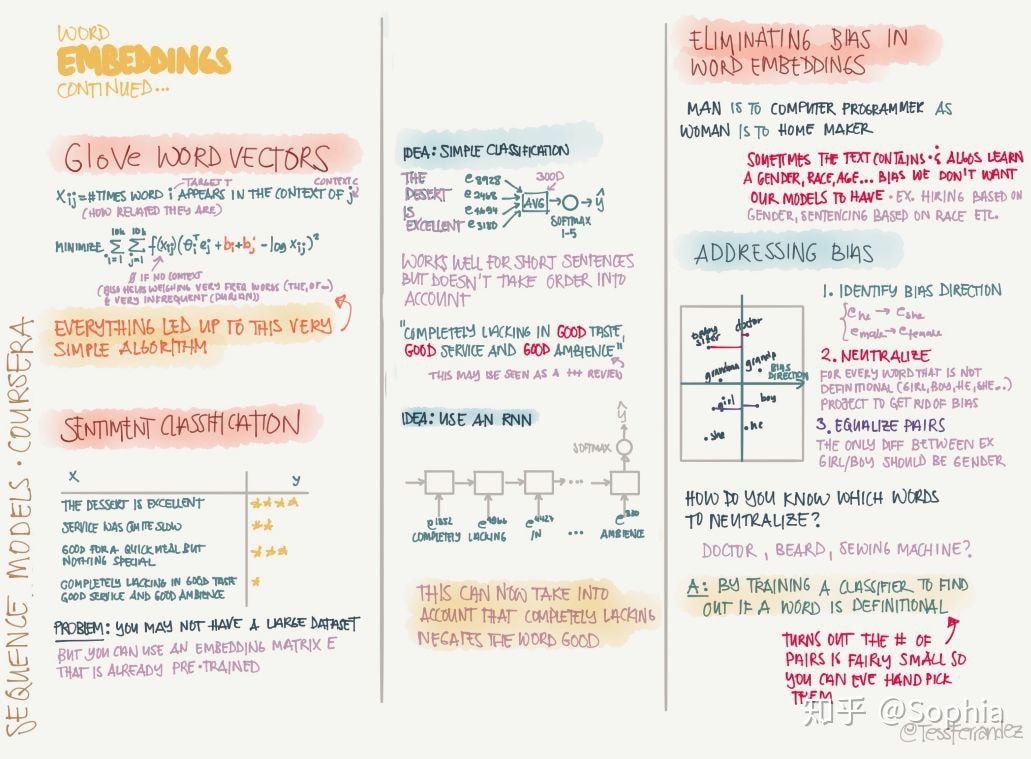 WORD
EMBEDDINGS
CONTINUED...
GloVe WORD VECTORS
Xij = #TIMES WORD i APPEARS IN THE CONTEXT OF j
TARGET T
CONTEXT C
(HOW RELATED THEY ARE)
MINIMIZE 10k Σ i=1 10k Σ j=1 f(Xij)(θiᵀej + bi + bj' - log Xij)²
IF NO CONTEXT
(ALSO HELPS WEIGHING VERY FREQ WORDS (THE, OF...)
& VERY INFREQUENT (DURIAN))
EVERYTHING LED UP TO THIS VERY
SIMPLE ALGORITHM
SENTIMENT CLASSIFICATION
X y
THE DESSERT IS EXCELLENT ★★★★
SERVICE WAS QUITE SLOW ★★
GOOD FOR A QUICK MEAL BUT
NOTHING SPECIAL ★★★
COMPLETELY LACKING IN GOOD TASTE
GOOD SERVICE AND GOOD AMBIENCE ★
PROBLEM: YOU MAY NOT HAVE A LARGE DATASET
BUT YOU CAN USE AN EMBEDDING MATRIX E
THAT IS ALREADY PRE-TRAINED
SEQUENCE MODELS · COURSERA
IDEA: SIMPLE CLASSIFICATION
THE e8928
DESERT e2468
IS e4694
EXCELLENT e3180
AVG
300D
ŷ
SOFTMAX
1-5
WORKS WELL FOR SHORT SENTENCES
BUT DOESN'T TAKE ORDER INTO
ACCOUNT
"COMPLETELY LACKING IN GOOD TASTE,
GOOD SERVICE AND GOOD AMBIENCE"
THIS MAY BE SEEN AS A +++ REVIEW
IDEA: USE AN RNN
ŷ
SOFTMAX
...
e1852 e4966 e4427 e330
COMPLETELY LACKING IN ... AMBIENCE
THIS CAN NOW TAKE INTO
ACCOUNT THAT COMPLETELY LACKING
NEGATES THE WORD GOOD
ELIMINATING BIAS IN
WORD EMBEDDINGS
MAN IS TO COMPUTER PROGRAMMER AS
WOMAN IS TO HOME MAKER
SOMETIMES THE TEXT CONTAINS · & ALGOS LEARN
A GENDER, RACE, AGE... BIAS WE DON'T WANT
OUR MODELS TO HAVE · EX. HIRING BASED ON
GENDER, SENTENCING BASED ON RACE ETC.
ADDRESSING BIAS
baby
sitter
doctor
grandma
grandp
BIAS
DIRECTION
girl
boy
she
he
1. IDENTIFY BIAS DIRECTION
ehe → eshe
emale → efemale
2. NEUTRALIZE
FOR EVERY WORD THAT IS NOT
DEFINITIONAL (GIRL, BOY, HE, SHE...)
PROJECT TO GET RID OF BIAS
3. EQUALIZE PAIRS
THE ONLY DIFF BETWEEN EX
GIRL/BOY SHOULD BE GENDER
HOW DO YOU KNOW WHICH WORDS
TO NEUTRALIZE?
DOCTOR, BEARD, SEWING MACHINE?
A: BY TRAINING A CLASSIFIER TO FIND
OUT IF A WORD IS DEFINITIONAL
TURNS OUT THE # OF
PAIRS IS FAIRLY SMALL SO
YOU CAN EVE HAND PICK
THEM
知乎 @Sophia
@TessFerrandez